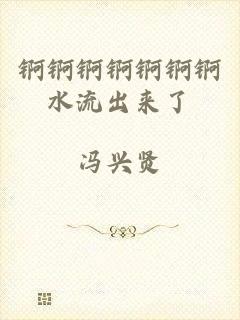 锕锕锕锕锕锕锕
水流出来了
冯兴贤